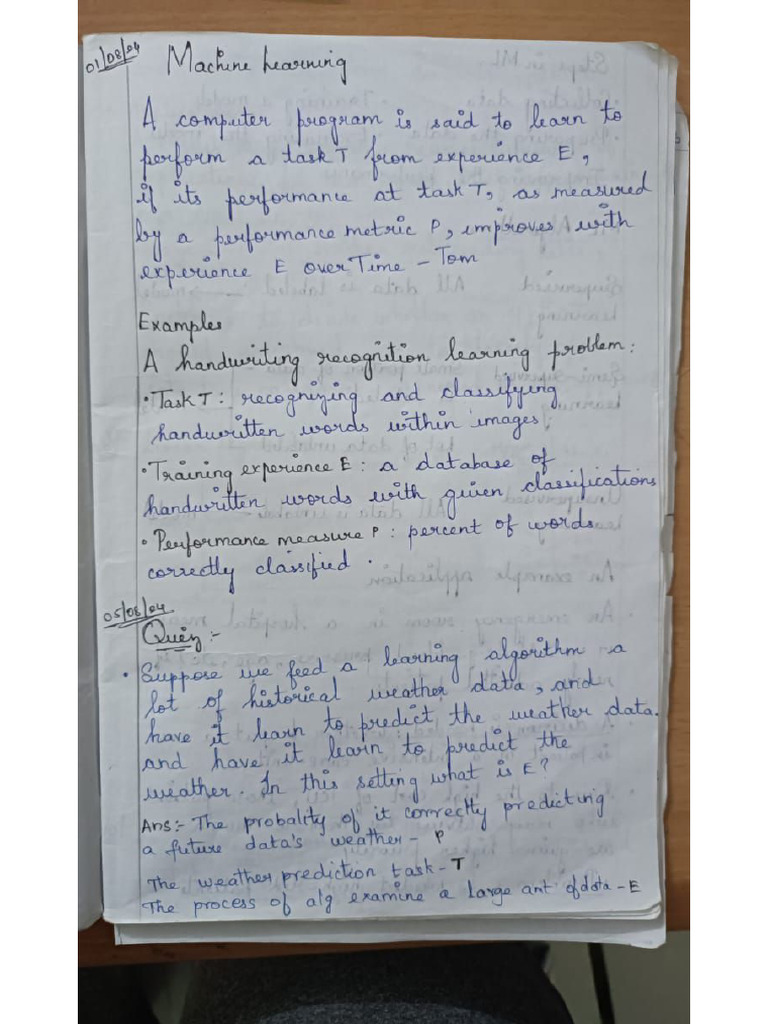 01/08/24
Machine Learning
A computer program is said to learn to
perform a task T from experience E,
if its performance at task T, as measured
by a performance metric P, improves with
experience E over Time - Tom
Examples
A handwriting recognition learning problem:
• Task T: recognizing and classifying
handwritten words within images.
• Training experience E: a database of
handwritten words with given classifications
• Performance measure P: percent of words
correctly classified.
05/08/24
Query:-
• Suppose we feed a learning algorithm a
lot of historical weather data, and
have it learn to predict the weather data.
and have it learn to predict the
weather. In this setting what is E?
Ans:- The probality of it correctly predicting
a future data's weather - P
The weather prediction task - T
The process of alg examine a large amt of data - E